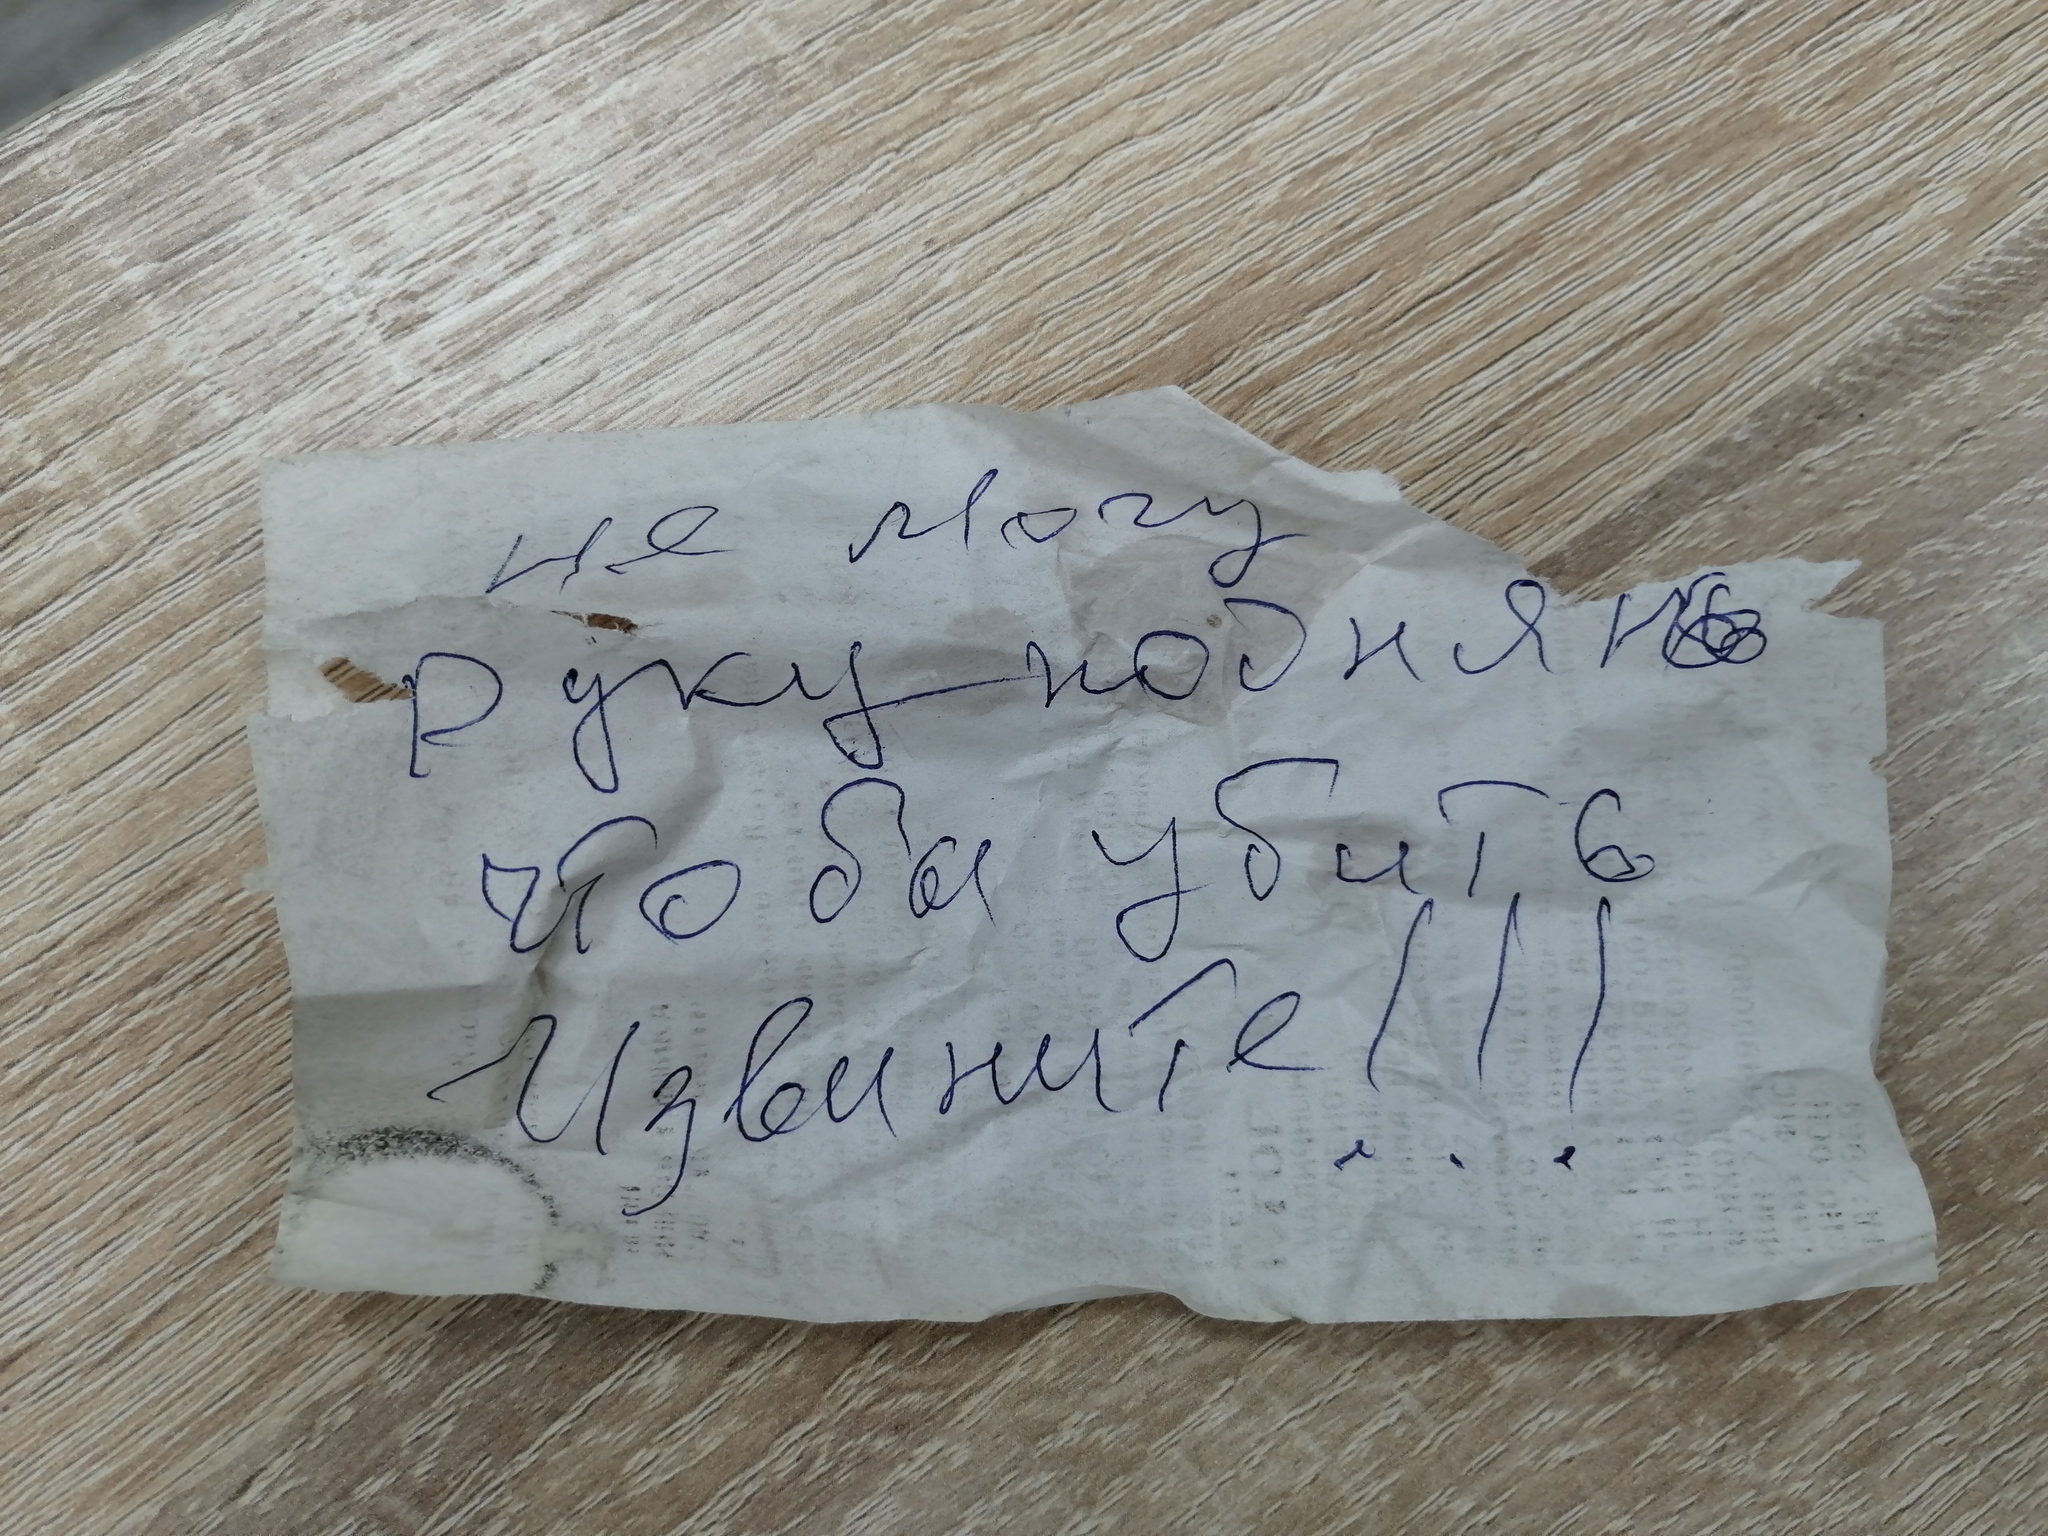 не могу
руку поднять
чтобы убить
Извините!!!